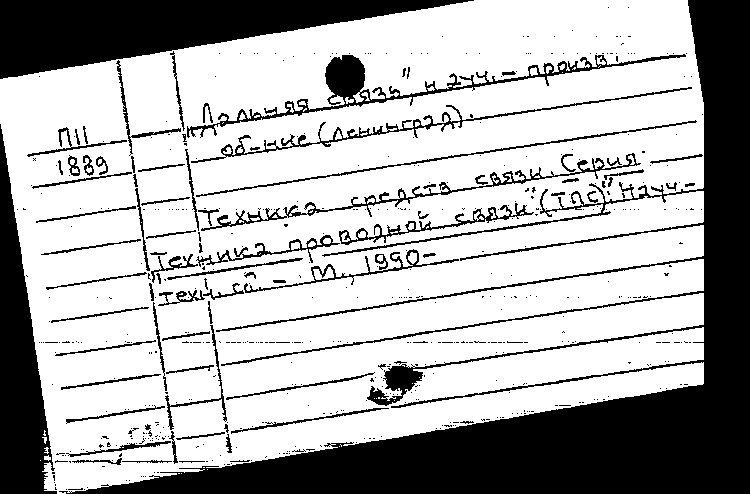 П11
1889
"Дальняя связь", науч. - произв.
об-ние (Ленинград).
Техника средств связи. Серия
"Техника проводной связи" (ТПС)". Науч.-
техн. сб. - М., 1990-